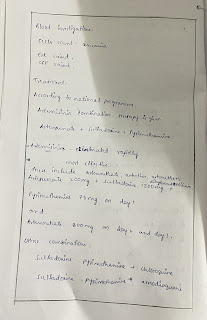 Blood Investigation:
count - anaemia
count,
count
Treatment:
According to national programme
Artemisinin combination therapy is given
Artesunate + Sulfadoxine + Pyrimethamine
Artemisinin - eliminated rapidly
most effective.
include artemether
Artesunate 200mg + Sulfadoxine 1500mg +
Pyrimethamine 75mg on day 1
and
Artesunate 200mg on day 2 and day 3.
Other combination:
Sulfadoxine Pyrimethamine + Chloroquine
Sulfadoxine - Pyrimethamine + amodiaquine